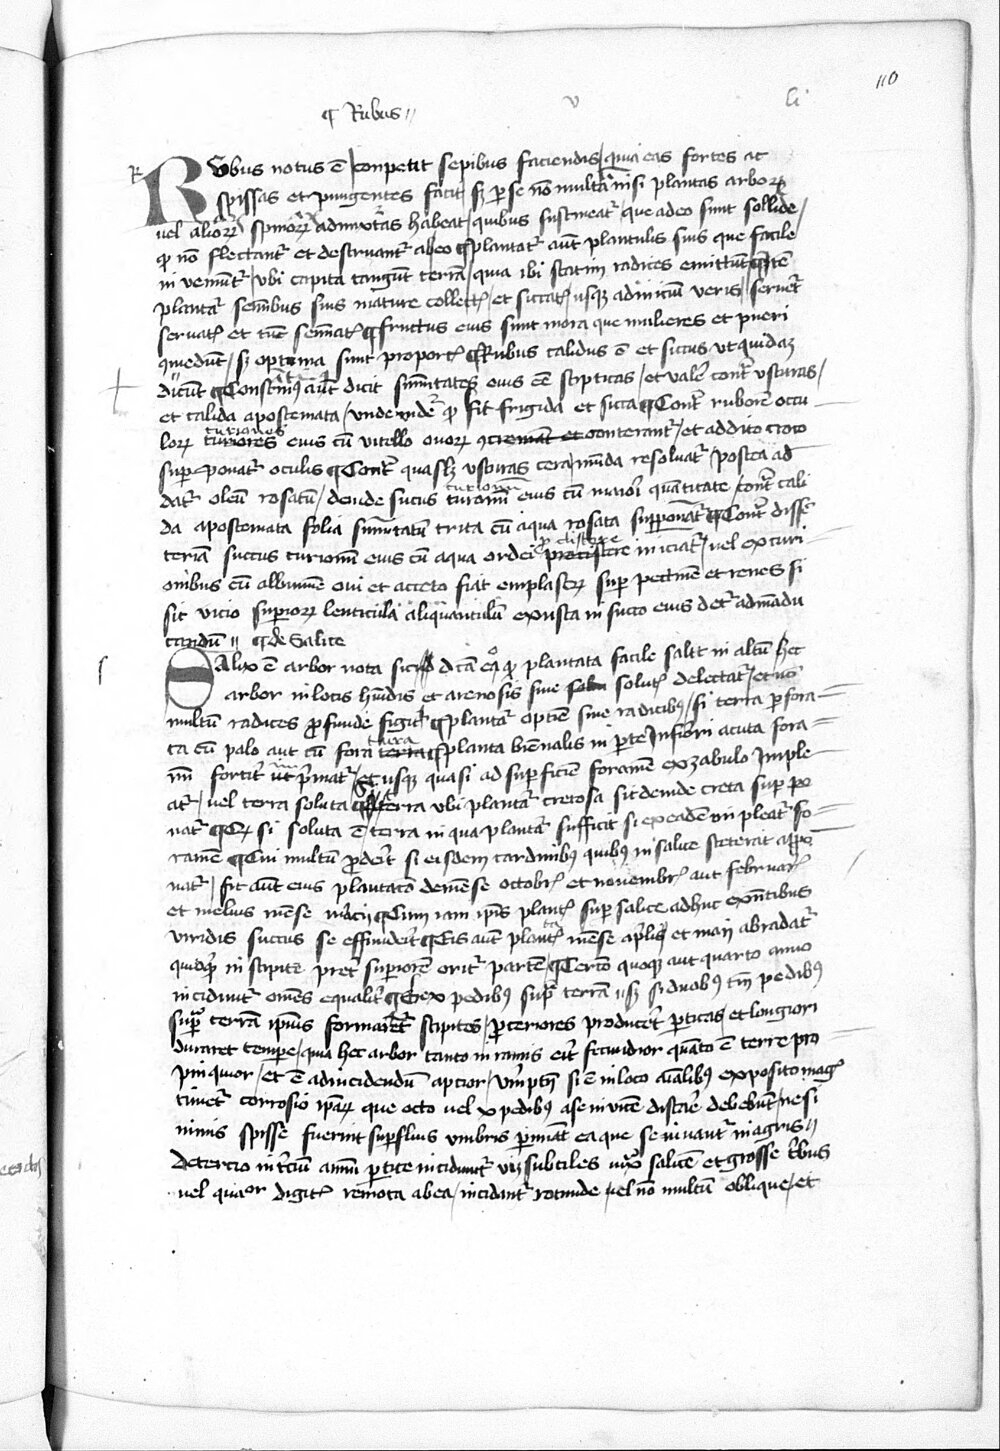 110
¶ Rubus // v li
R
RVbus notus ē conpetit sepibus faciendis quia eas fortes ac
spissas et pungentes facit sȝ per se nō multū nisi plantas arborꝝ
vel aliorꝝ spinorꝝ admixtas habeat / quibus sustineatr / que adeo sunt sollide /
ꝙ nō flectantr et destruantr ab eo ¶ plantatr aūt plantulis suis que facile
inveniūtr / vbi capita tangūt terrā / quia ibi statim radices emittūt
plantatr seminibus suis mature collectis et siccatis usqȝ ad inicium veris
servatis et tūc seminatis ¶ fructus eius sunt mora que mulieres et pueri
comedūt / sȝ optima sunt pro porcis ¶ Rubus calidus ē et siccus ut quidaȝ
dicūt ¶ Constantinus aūt dicit sūmitates eius eē stipticas / et valēt contra usturas /
et calida apostemata / unde videtr ꝙ sit frigida et sicca ¶ Contra ruborē ocu
lorꝝ turiones eius cū vitello ovorꝝ conterantr / et addito croco
superponatr oculis ¶ Contra quaslȝ usturas cera munda resolvatr / postea ad
datr oleū rosatū / deinde sucus turionū eius cū maiori quantitate / contra cali
da apostemata folia sūmitatū trita cū aqua rosata superponatr ¶ Contra dissē
teriā succus turionū eius cū aqua ordei per clistere iniciatr / vel ex turi
onibus cū albumine ovi et acceto fiat emplastrꝝ super pectinē et renes si
sit vicio superiorꝝ lenticula aliquantulū exusta in succo eius detr ad mādu
candū // ¶ de Salice
SAlix ē arbor nota sic dcā eo ꝙ plantata facile salit in altū hec
arbor in locis humidis et arenosis sive solutis delectatr / et nō
multū radices profunde figit ¶ plantatr optime sine radicibus / si terra perfora
ta cū palo aut cū fora terra ¶ planta biennalis in parte inferiori acuta fora
mī fortiter inprimatr / et usqȝ quasi ad superficiē foramē ex zabulo imple
atr / vel terra soluta terra vbi plantatr cretosa sit deinde creta super po
natr ¶ si soluta ē terra in qua plantatr sufficit si ex eadē inpleatr fo
ramē ¶ Cui multū proderit si eisdem cardinibus quibus in salice steterat appo
natr / fit aūt eius plantatio de mense octobris et novembris aut februarii
et melius mense marcii ¶ Cum iam ipsis plantis super salice adhuc existentibus
viridis succus se effunderit ¶ Eis aūt plantatis mense aprilis et maii abradatr
quidquid in stipite preter superiorē oritr partē ¶ Tercio quoqȝ aut quarto anno
inciduntr omēs equaliter ¶ Sex pedibus supra terrā // sȝ si duobus tm̄ pedibus
supra terrā ipsius formaretr stipites / perteriores produceret perticas / et longiori
duraret tempore / quia hec arbor tanto in ramis erit fecundior quanto ē terre pro
pinquior / et ē ad incidendū apcior / verumptn̄ si ē in loco aīalibus exposito mag
timetr corrosio ipsarꝝ que octo vel x pedibus a se invicē distare debebūt / ne si
nimis spisse fuerint superfluis umbris perimāt ea que seminantr in agris //
De tercio in tercium annū pertice inciduntr viz subtiles iuxta salicē et grosse tribus
vel quatuor digitis remota ab ea / incidantr rotunde vel nō multū oblique / et